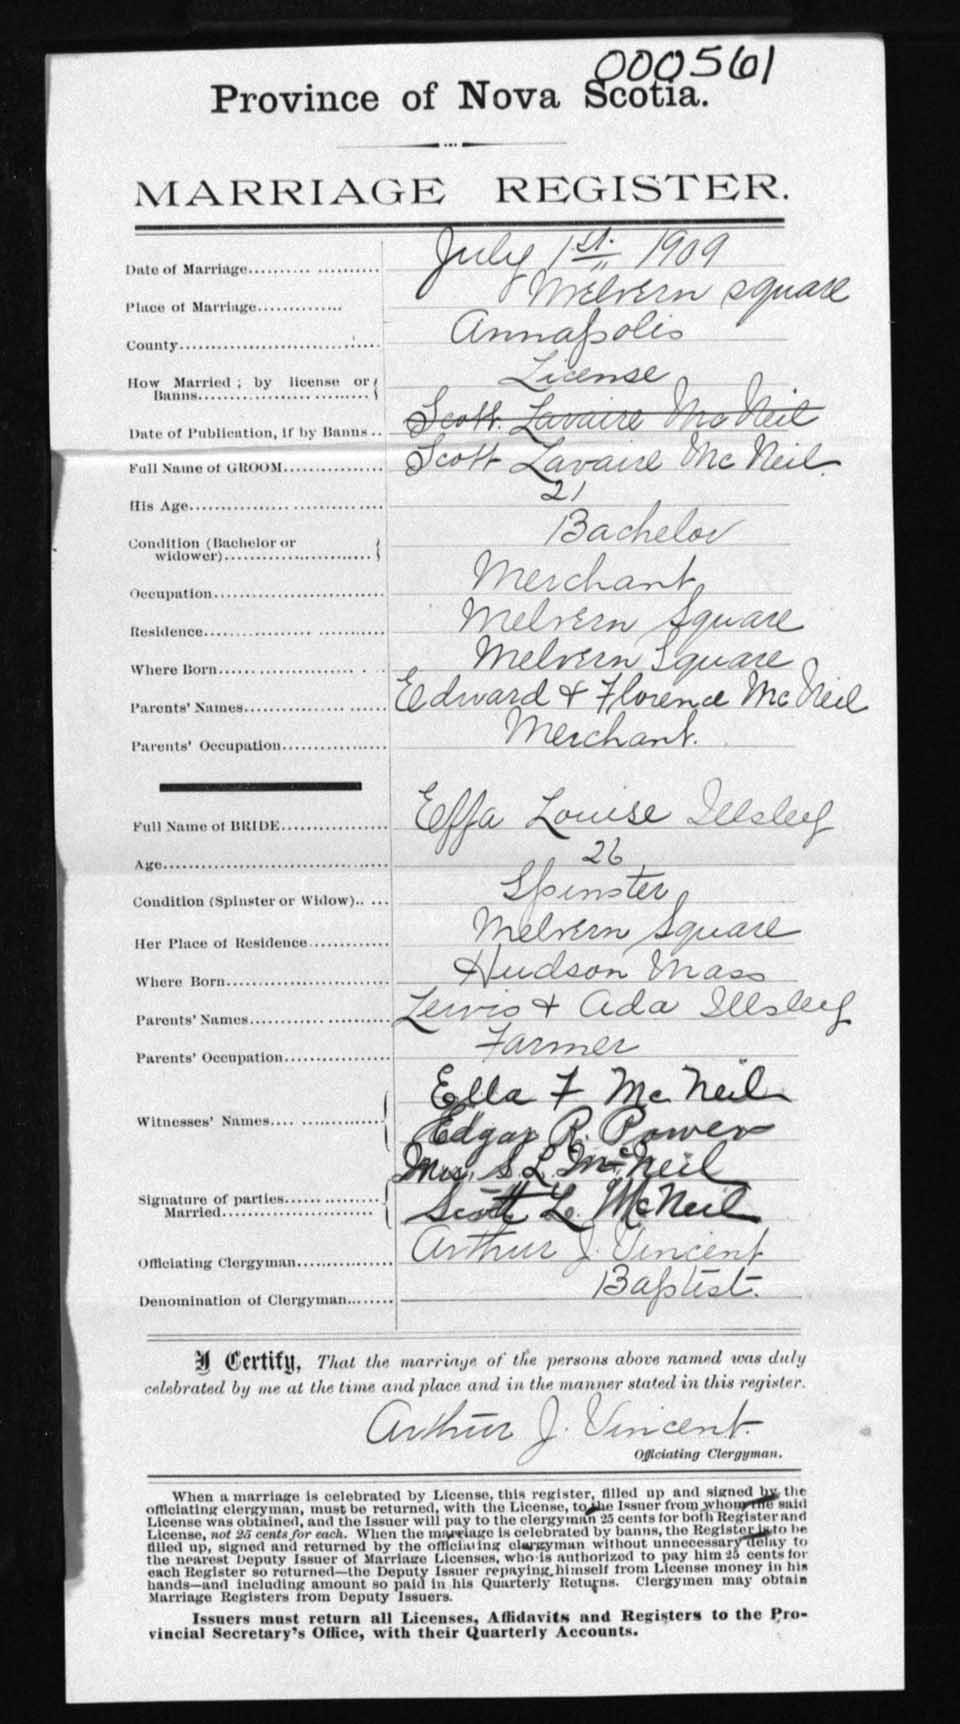 000561
Province of Nova Scotia.
MARRIAGE REGISTER.
Date of Marriage.................... July 1st. 1909
Place of Marriage.............. Melvern Square
County............................... Annapolis
How Married ; by license or
Banns................................ License
Date of Publication, if by Banns .. Scott Lavaire McNeil
Full Name of GROOM................ Scott Lavaire McNeil.
His Age............................... 21
Condition (Bachelor or
widower).......................... Bachelor
Occupation............................ Merchant
Residence............................ Melvern Square
Where Born.......................... Melvern Square
Parents' Names....................... Edward & Florence McNeil
Parents' Occupation................. Merchant.
Full Name of BRIDE................. Effa Louise Illsley
Age.................................... 26
Condition (Spinster or Widow)..... Spinster
Her Place of Residence............. Melvern Square
Where Born........................... Hudson Mass
Parents' Names....................... Lewis & Ada Illsley
Parents' Occupation................. Farmer
Ella F McNeil
Witnesses' Names.................... Edgar R. Power
Mrs. S. L. McNeil
Signature of parties.................
Married........................... Scott L. McNeil
Officiating Clergyman............... Arthur J. Vincent
Denomination of Clergyman........ Baptist.
I Certify, That the marriage of the persons above named was duly
celebrated by me at the time and place and in the manner stated in this register.
Arthur J. Vincent.
Officiating Clergyman.
When a marriage is celebrated by License, this register, filled up and signed by the
officiating clergyman, must be returned, with the License, to the Issuer from whom the said
License was obtained, and the Issuer will pay to the clergyman 25 cents for both Register and
License, not 25 cents for each. When the marriage is celebrated by banns, the Register is to be
filled up, signed and returned by the officiating clergyman without unnecessary delay to
the nearest Deputy Issuer of Marriage Licenses, who is authorized to pay him 25 cents for
each Register so returned—the Deputy Issuer repaying himself from License money in his
hands—and including amount so paid in his Quarterly Returns. Clergymen may obtain
Marriage Registers from Deputy Issuers.
Issuers must return all Licenses, Affidavits and Registers to the Pro-
vincial Secretary's Office, with their Quarterly Accounts.